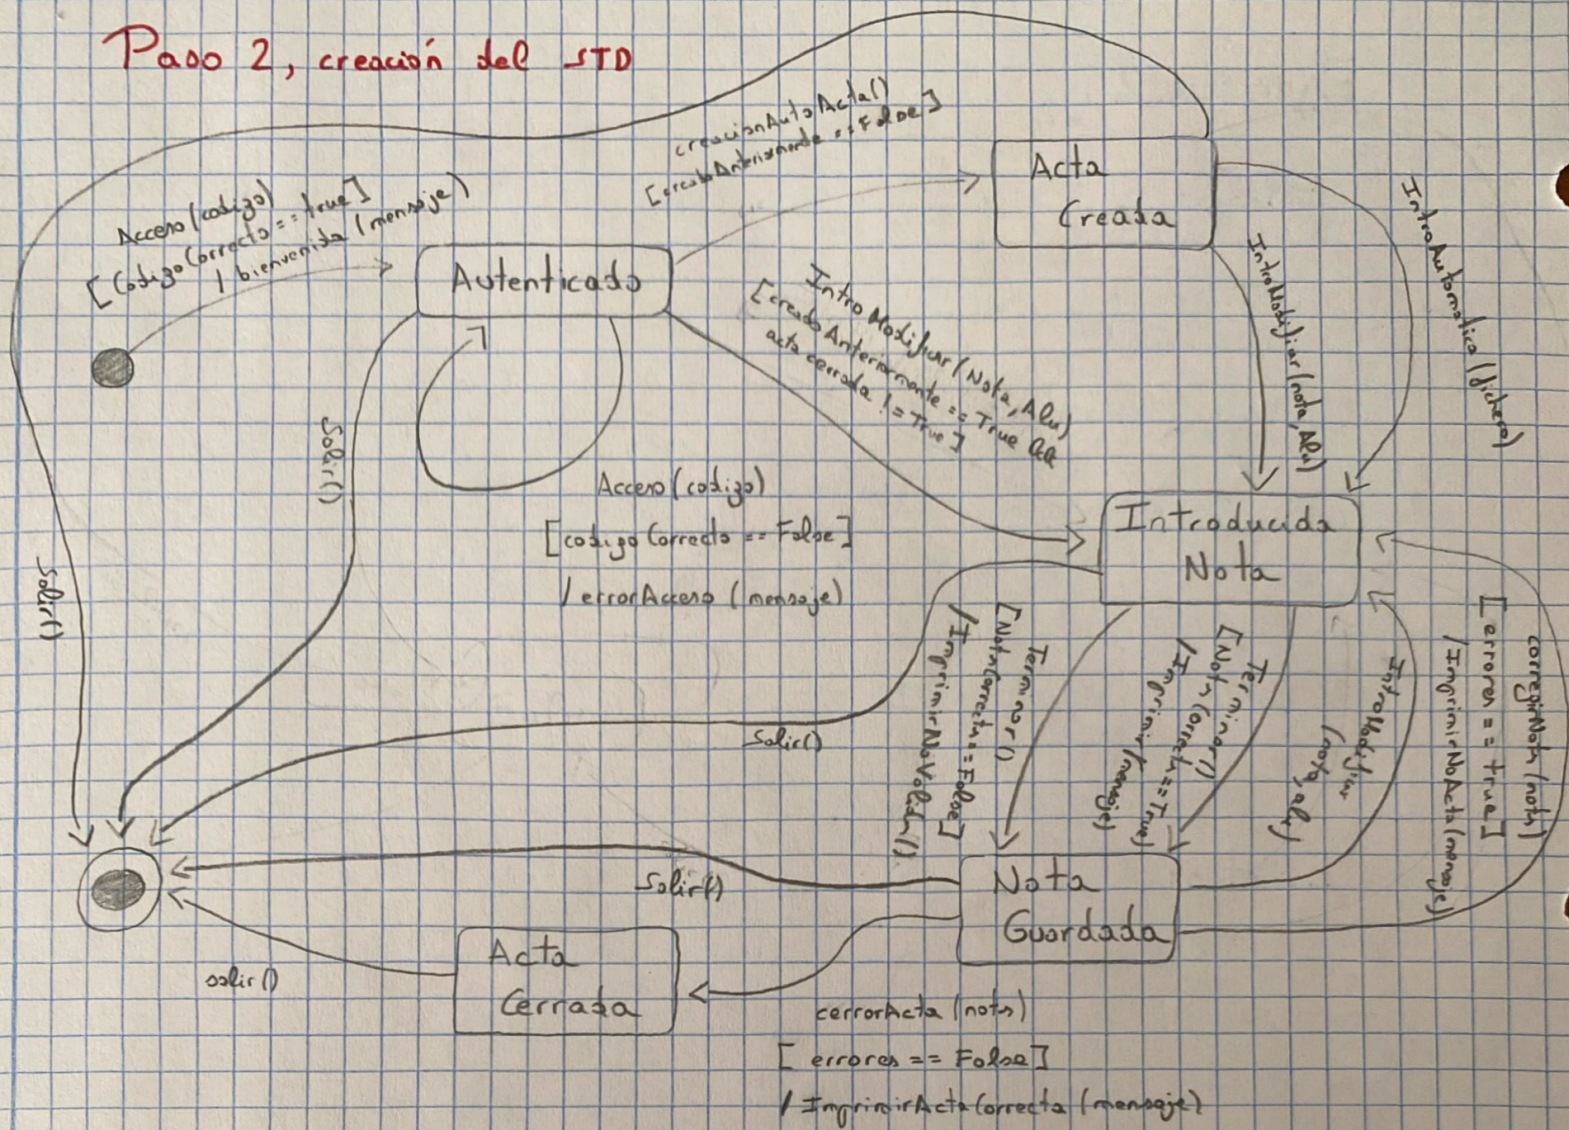 Paso 2, creación del STD
creacionAutoActa()
[creadoAnteriormente == False]
Acta
Creada
Acceso(codigo)
[Codigo Correcto == True]
/ bienvenida (mensaje)
Autenticado
Intro Modificar (Nota, Alu)
[creado Anteriormente == True &&
acta cerrada != True]
IntroModificar (nota, Alu)
IntroAutomatica (fichero)
Salir()
Acceso (codigo)
[codigo Correcto == False]
/ errorAcceso (mensaje)
Salir()
Introducida
Nota
Terminar()
[NotaCorrecta == False]
/ImprimirNoValida()
Terminar()
[Nota Correcta == True]
/Imprimir(mensaje)
IntroModificar
(nota, alu)
corregirNota (nota)
[errores == true]
/ImprimirNoActa(mensaje)
Salir()
Salir()
Nota
Guardada
Acta
Cerrada
salir()
cerrarActa (nota)
[ errores == False]
/ ImprimirActaCorrecta (mensaje)